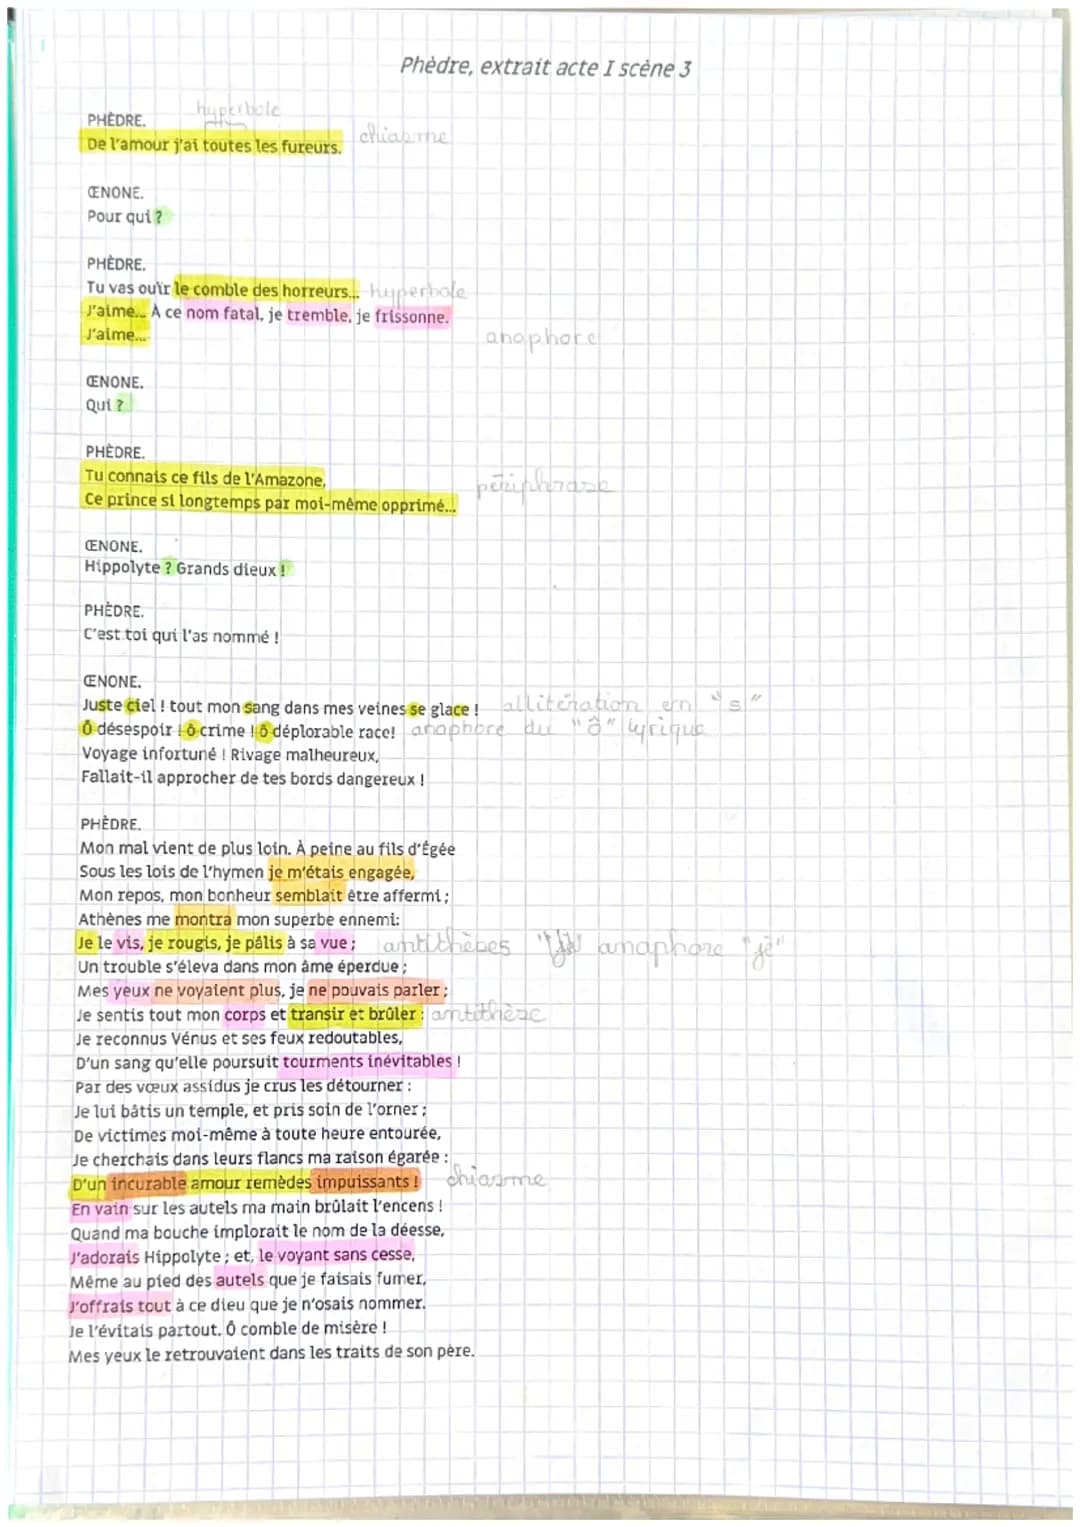 Phèdre, extrait acte I scène 3
hyperbole
PHÈDRE.
De l'amour j'ai toutes les fureurs. chiasme
ŒNONE.
Pour qui ?
PHÈDRE.
Tu vas ouïr le comble des horreurs... hyperbole
J'aime... À ce nom fatal, je tremble, je frissonne.
J'aime... anaphore
ŒNONE.
Qui ?
PHÈDRE.
Tu connais ce fils de l'Amazone,
Ce prince si longtemps par moi-même opprimé... périphrase
ŒNONE.
Hippolyte ? Grands dieux !
PHÈDRE.
C'est toi qui l'as nommé !
ŒNONE.
Juste ciel ! tout mon sang dans mes veines se glace ! allitération en "s"
Ô désespoir ! ô crime ! ô déplorable race! anaphore du "ô" lyrique
Voyage infortuné ! Rivage malheureux,
Fallait-il approcher de tes bords dangereux !
PHÈDRE.
Mon mal vient de plus loin. À peine au fils d'Égée
Sous les lois de l'hymen je m'étais engagée,
Mon repos, mon bonheur semblait être affermi ;
Athènes me montra mon superbe ennemi:
Je le vis, je rougis, je pâlis à sa vue ; antithèses anaphore "je"
Un trouble s'éleva dans mon âme éperdue ;
Mes yeux ne voyaient plus, je ne pouvais parler ;
Je sentis tout mon corps et transir et brûler : antithèse
Je reconnus Vénus et ses feux redoutables,
D'un sang qu'elle poursuit tourments inévitables !
Par des vœux assidus je crus les détourner :
Je lui bâtis un temple, et pris soin de l'orner ;
De victimes moi-même à toute heure entourée,
Je cherchais dans leurs flancs ma raison égarée :
D'un incurable amour remèdes impuissants ! chiasme
En vain sur les autels ma main brûlait l'encens !
Quand ma bouche implorait le nom de la déesse,
J'adorais Hippolyte ; et, le voyant sans cesse,
Même au pied des autels que je faisais fumer,
J'offrais tout à ce dieu que je n'osais nommer.
Je l'évitais partout. Ô comble de misère !
Mes yeux le retrouvaient dans les traits de son père.